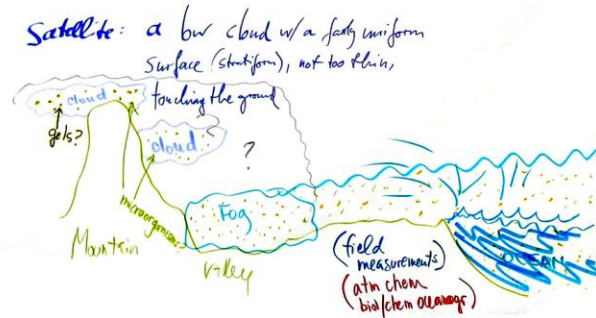 Satellite: a low cloud w/a fairly uniform
surface (stratiform), not too thin,
touching the ground
cloud
gels?
cloud
?
microorganisms
Fog
Mountain
valley
(field
measurements)
(atm chem
biol/chem oceanogr)
OCEAN